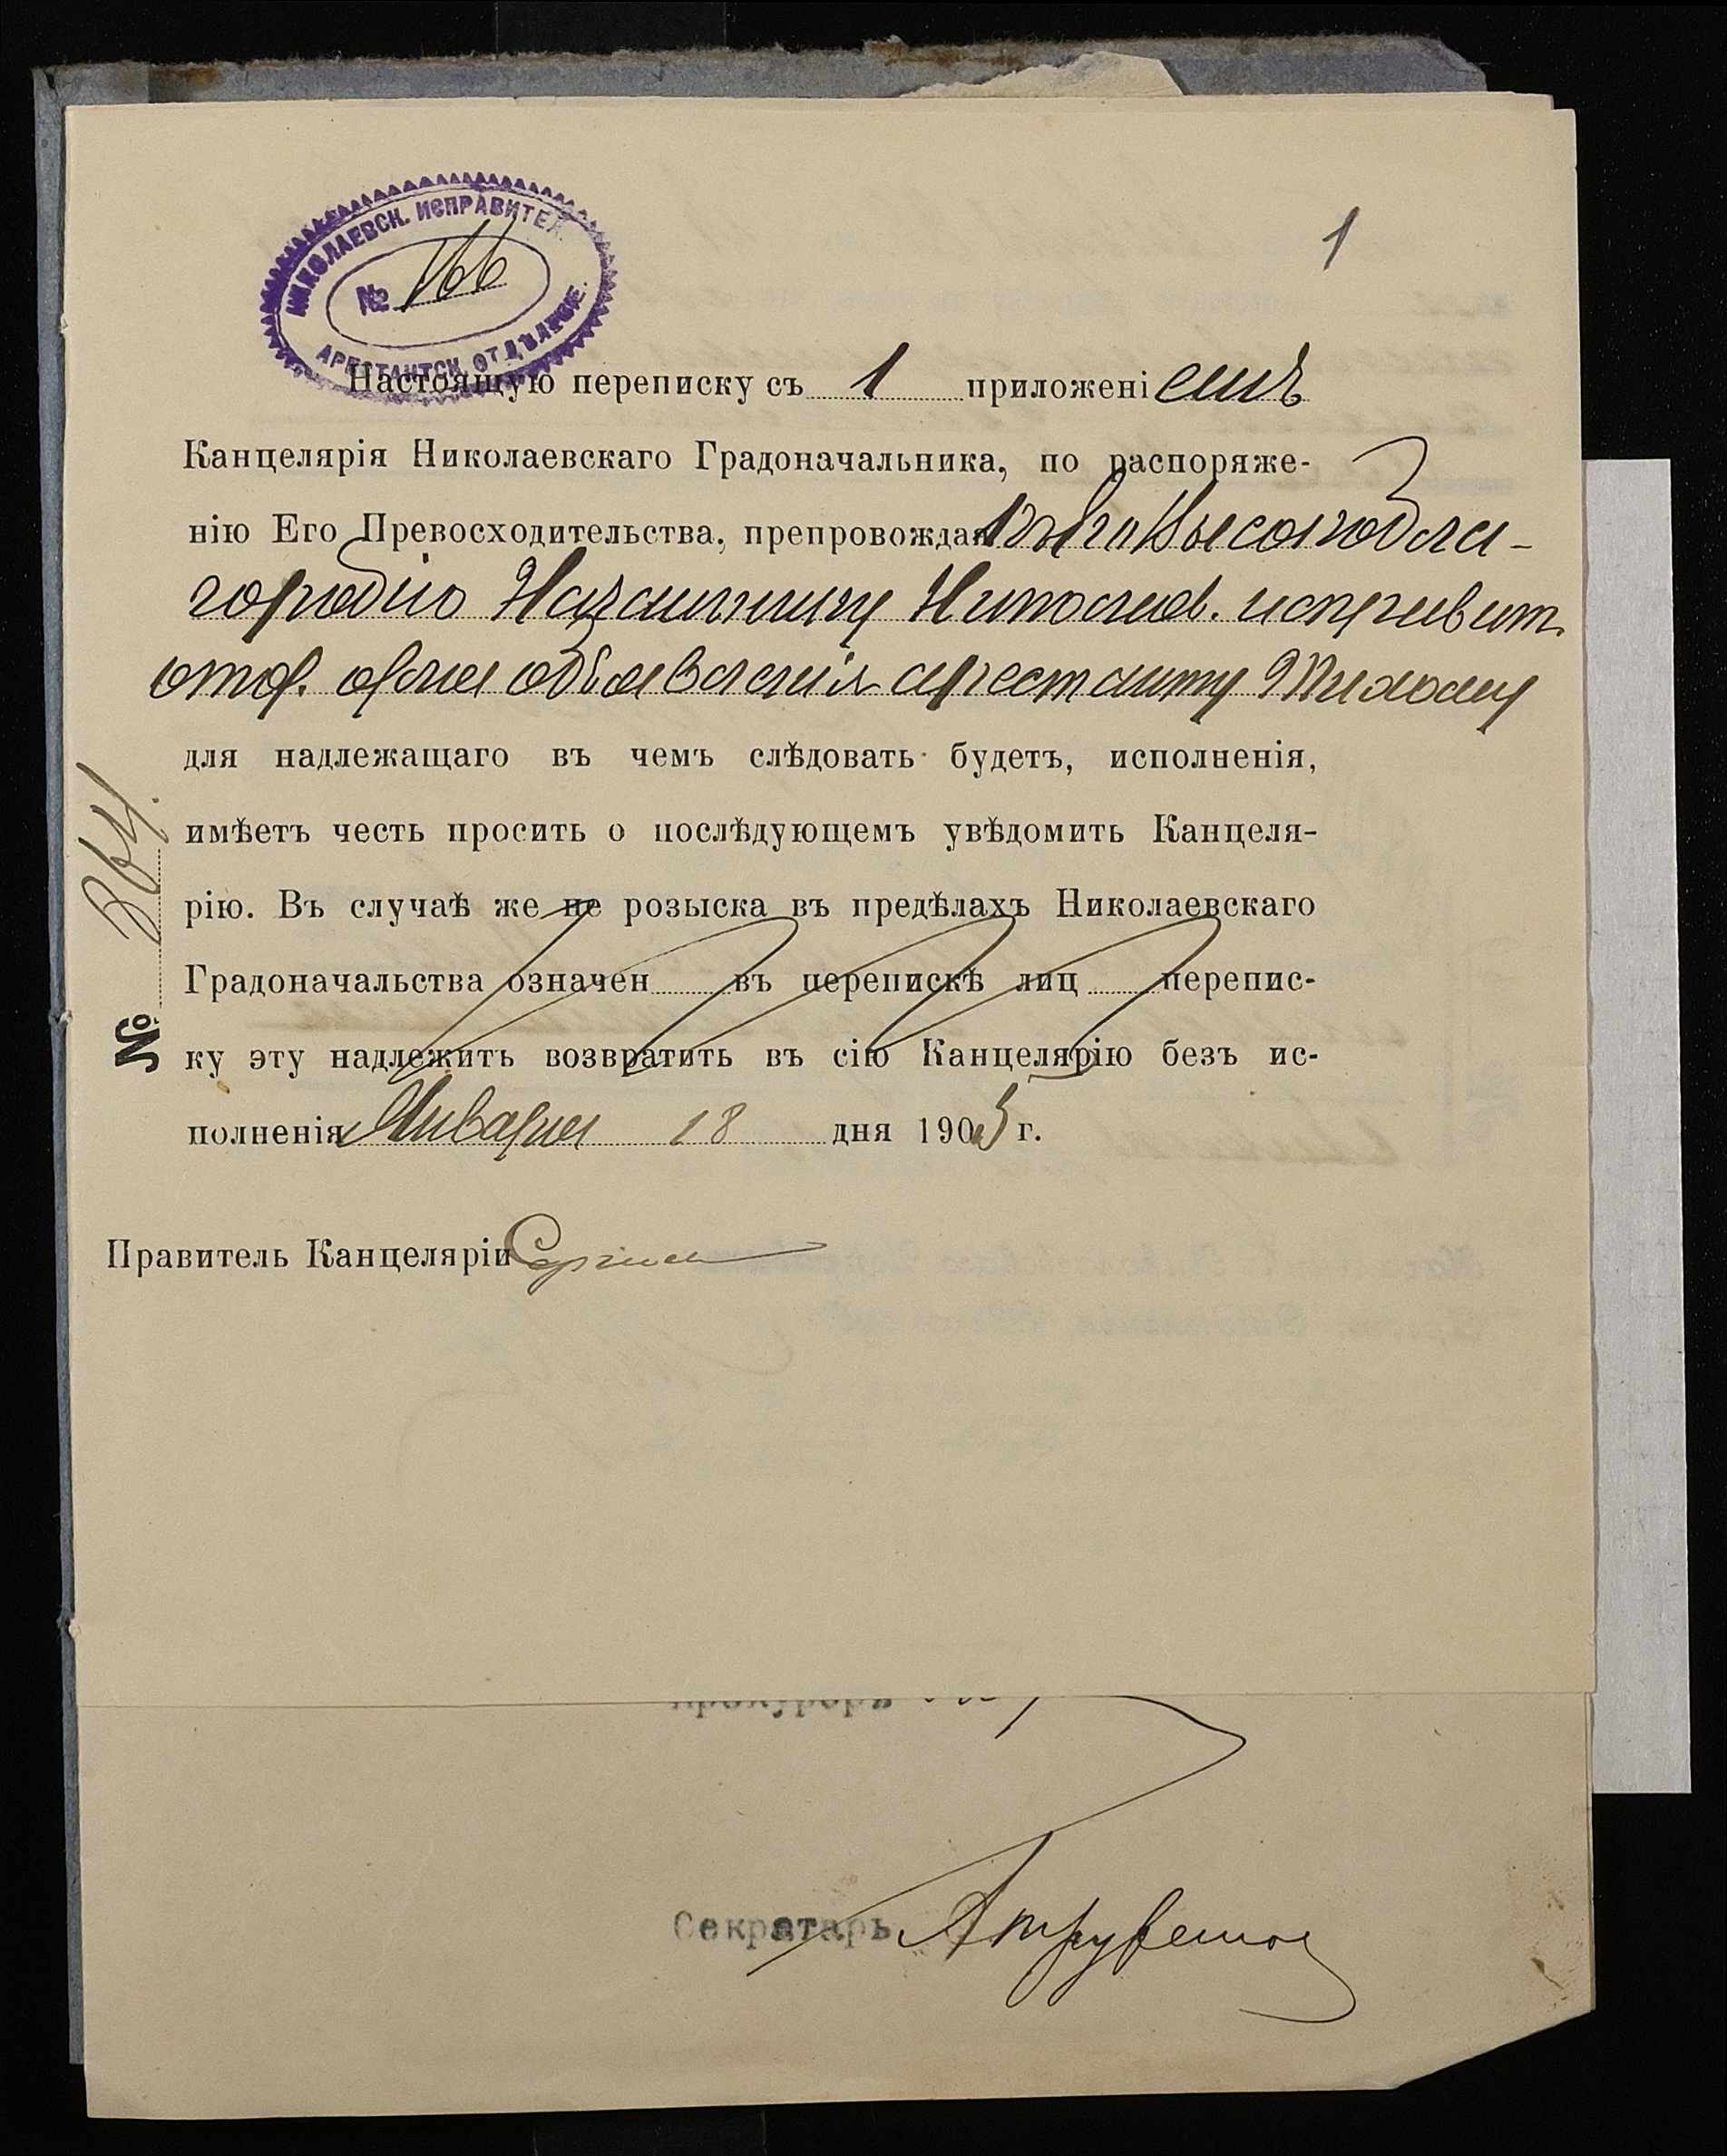 НИКОЛАЕВСК. ИСПРАВИТЕЛ.
№ 166
АРЕСТАНТСК. ОТДѢЛЕНІЕ.
1
Настоящую переписку съ 1 приложеніемъ
Канцелярія Николаевскаго Градоначальника, по распоряже-
нію Его Превосходительства, препровождая Его Высокобла-
городію Начальнику Николаев. исправит.
отд. для объявленія арестанту Тихому
для надлежащаго въ чемъ слѣдовать будетъ, исполненія,
имѣетъ честь просить о послѣдующемъ увѣдомить Канцеля-
рію. Въ случаѣ же не розыска въ предѣлахъ Николаевскаго
Градоначальства означен въ перепискѣ лиц перепис-
ку эту надлежитъ возвратить въ сію Канцелярію безъ ис-
полненія Января 18 дня 1905 г.
№ 364.
Правитель Канцеляріи
Прокуроръ
Секретарь